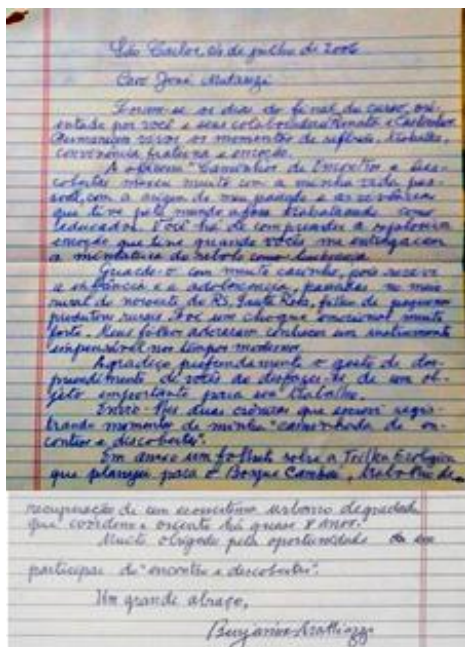 São Carlos 04 de julho de 2006
Caro José Matarezi
Foram-se os dias do final do curso, ori-
entado por você e seus colaboradores Renata e
Permanecem vivos os momentos de reflexão, trabalho,
convivência fraterna e emoção.
A oficina "Caminhos de Encontros e Des-
cobertas" mexeu muito com a minha vida pes-
soal, com a origem do meu passado e as
que tive pelo mundo afora trabalhando como
educador. Você há de compreender a
emoção que tive quando vocês me entregaram
a miniatura do rebolo como lembrança.
Guardo-o com muito carinho, pois
a infância e a adolescência, passadas no meio
rural do noroeste do RS, Santa Rosa, filho de pequenos
produtores rurais. Foi um choque emocional muito
forte. Meus filhos adoraram conhecer um instrumento
nos tempos modernos.
Agradeço profundamente o gesto de des-
prendimento de vocês ao desfazer-se de um ob-
jeto importante para seu trabalho.
Envio-lhes duas crônicas que escrevi regis-
trando momentos de minha "caminhada de en-
contros e descobertas".
Em anexo um folheto sobre a Trilha Ecológica
que planejei para o Bosque Cambuí, trabalho de
recuperação de um ecossistema urbano degradado
que coordeno e oriento há quase 8 anos.
Muito obrigado pela oportunidade de
participar de "encontros e descobertas".
Um grande abraço,
Benjamin